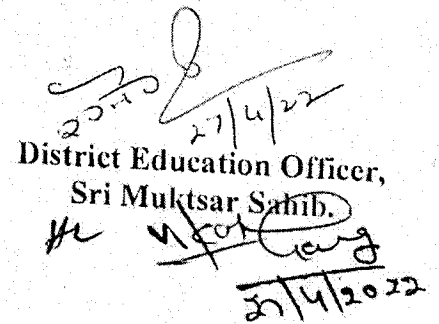 27/4/22
District Education Officer,
Sri Muktsar Sahib.
Garg
27/4/2022